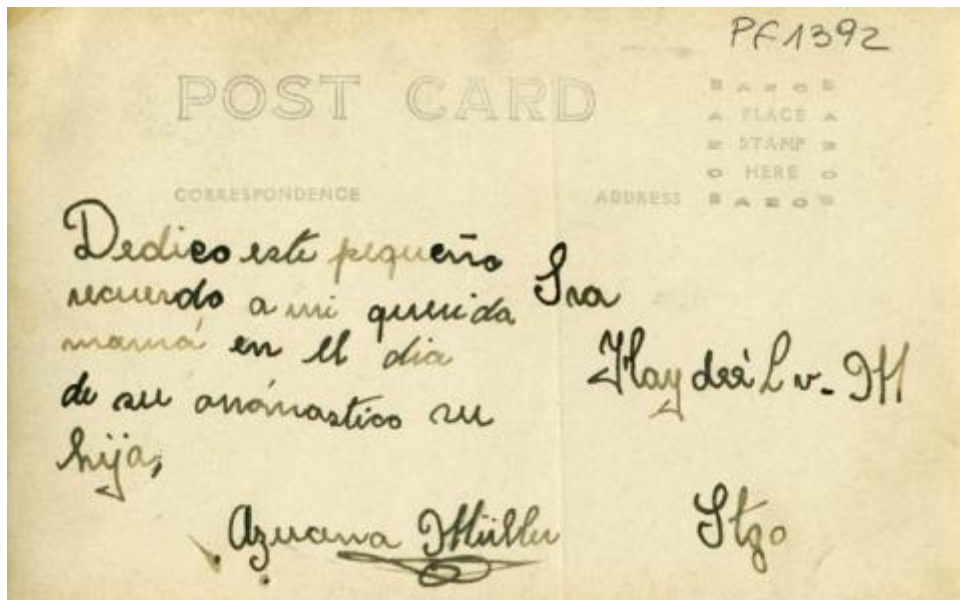 PF1392
POST CARD
PLACE
STAMP
HERE
CORRESPONDENCE
ADDRESS
Dedico este pequeño
recuerdo a mi querida
mamá en el dia
de su onónastico su
hija,
Azucena Müller
Sra
Haydeé L v. M
Stgo